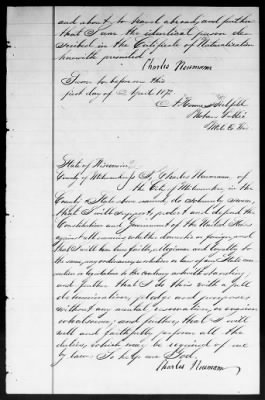 and about to travel abroad, and further
that I am the identical person de-
scribed in the Certificate of Naturalization
herewith presented
Charles Neumann
Sworn to before me this
first day of April 187
Notary Public
State of Wisconsin
County of Milwaukee I, Charles Neumann of
the City of Milwaukee, in the
County & State aforesaid, do solemnly swear,
that I will support, protect and defend the
Constitution and Government of the United States
against all enemies, whether domestic or foreign, and
that I will bear true faith, allegiance and loyalty to
the same, any ordinance, resolution or law of any State con-
vention or Legislature to the contrary notwithstanding;
and further that I do this with a full
determination, pledge and purpose
without any mental reservation or evasion
whatsoever; and further, that I will
well and faithfully perform all the
duties, which may be required of me
by law. So help me God.
Charles Neumann